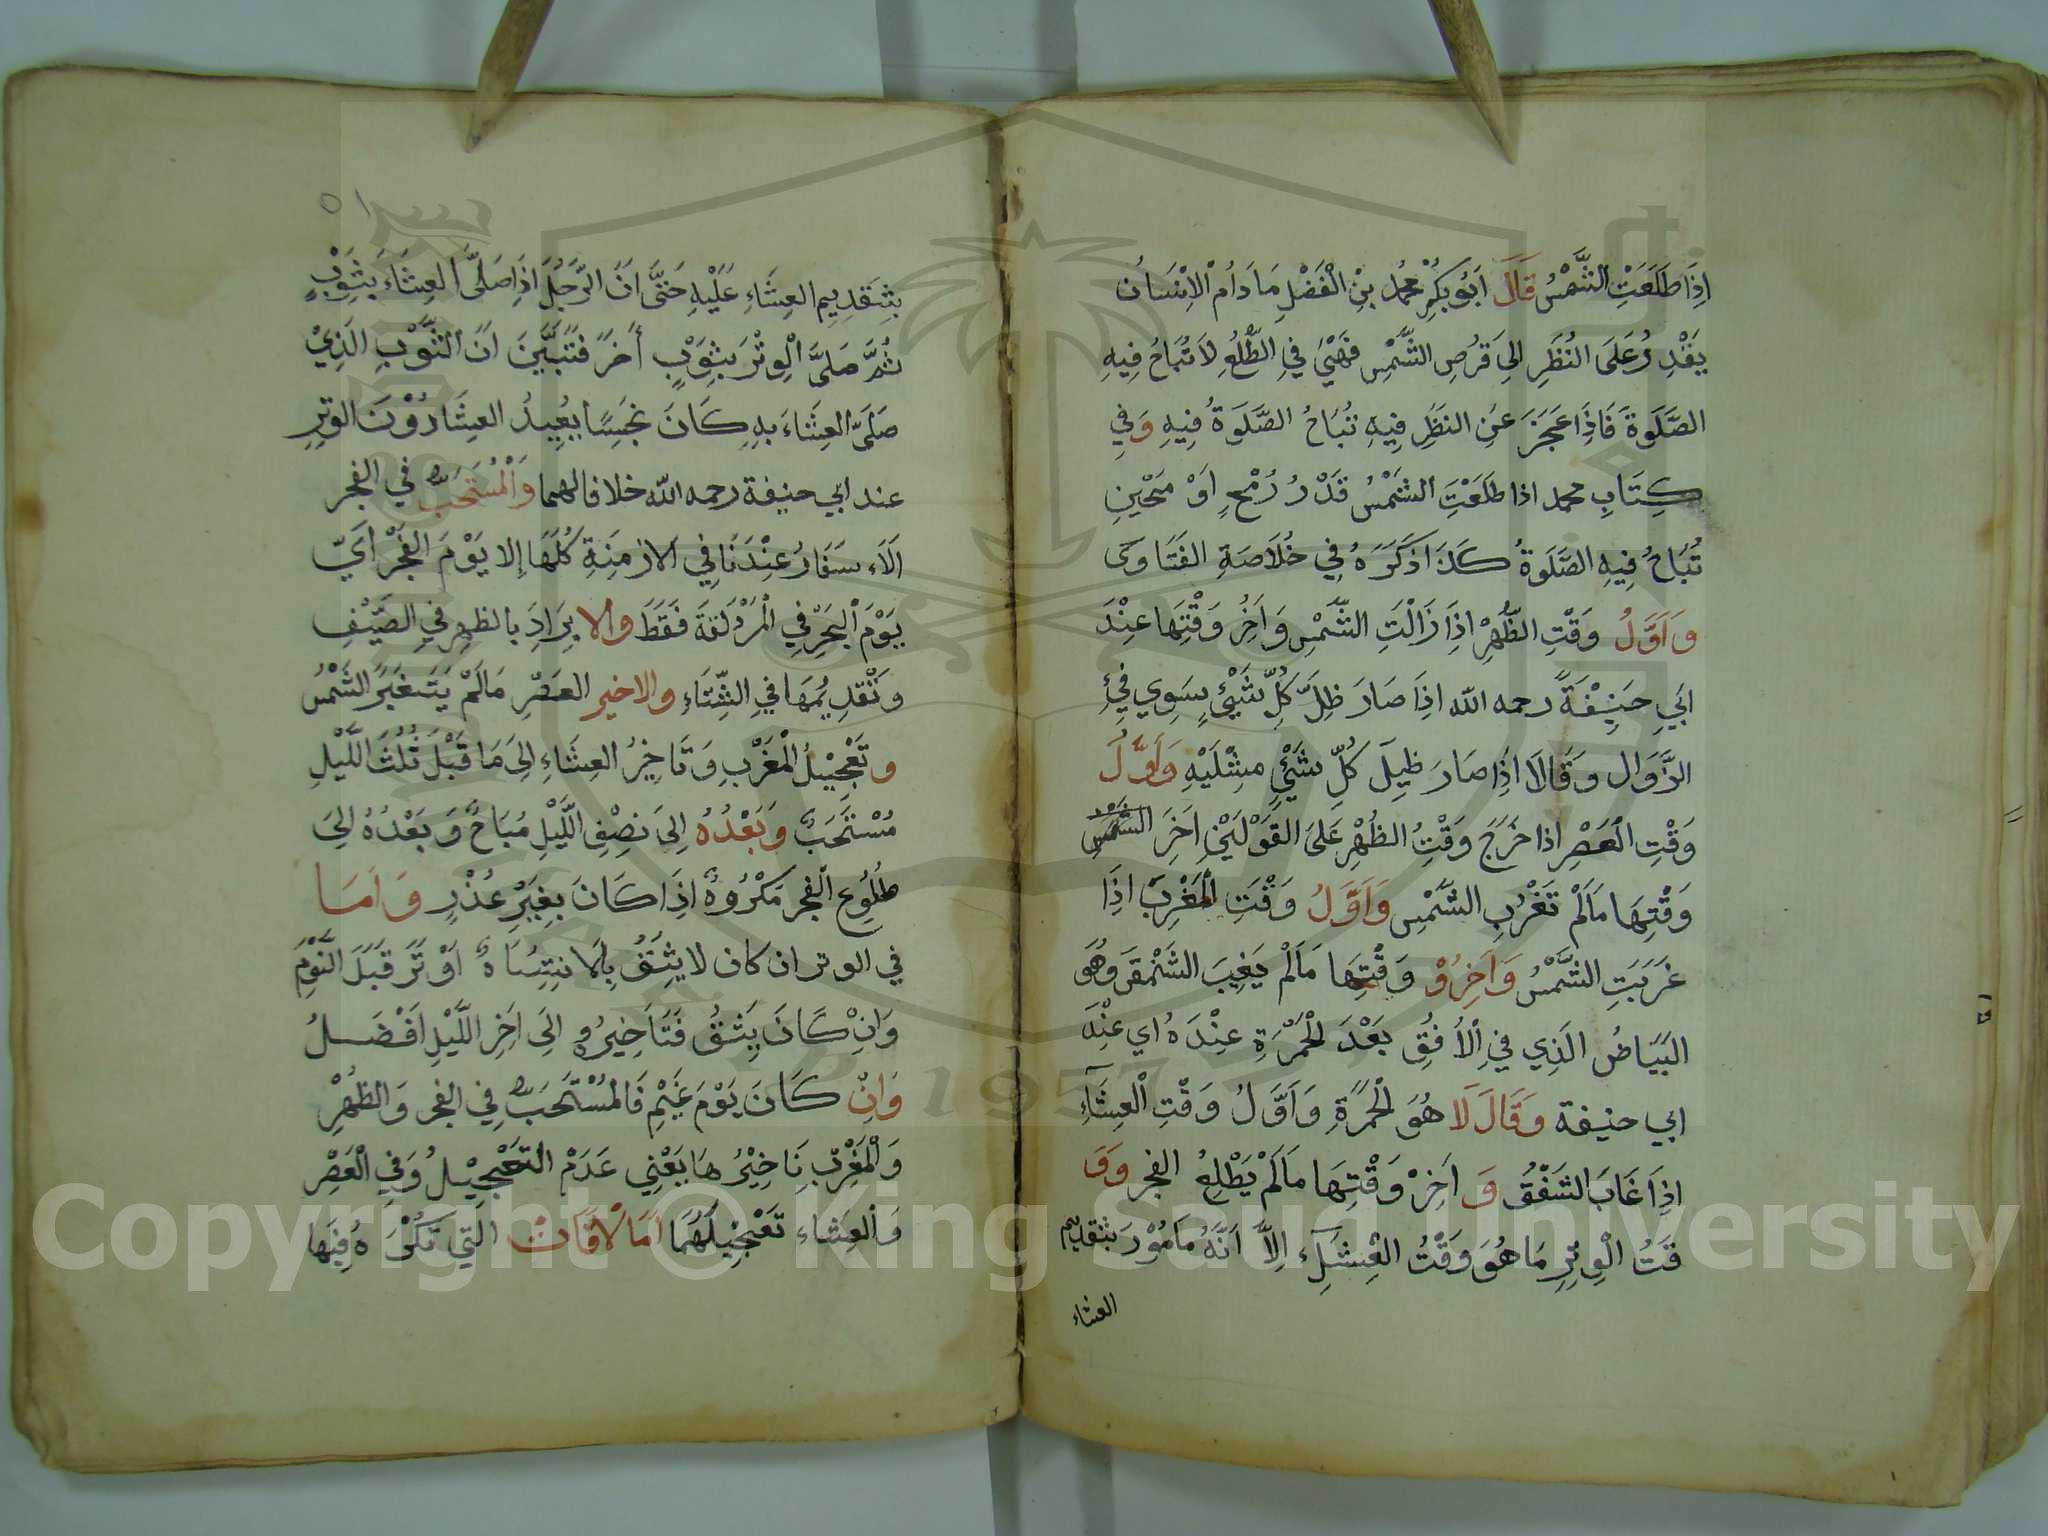 اِذَا طَلَعَتِ الشَّمْسُ قَالَ اَبُوبَكِرْ محمد بْنِ الْفَضْلِ مَا دَامْ الْاِنْسَانُ
يَقْدِرُ عَلَى النَّظَرِ اِلَى قَرْصِ الشَّمْسِ فَهِيَ فِي الطُّلْعِ لَا تُبَاحُ فِيهِ
الصَّلَوةَ فَاِذَا عَجَزَ عَنِ النَظَرِ فِيهِ تُبَاحُ الصَّلَوةُ فِيهِ وَفِي
كِتَابِ محمد اذا طَلَعْتَ الشَمْسُ قَدْرُ رُمْحٍ اَوْ مَحْيْنِ
تُبَاحُ فِيهِ الصَّلَوةُ كَذَا ذَكَرَهُ فِي خُلَاصَةِ الفَتَاوَى
وَاَوَّلُ وَقْتِ الظُّهْرِ اِذَا زَالَتِ الشَّمْسِ وَاَخِرُ وَقْتِهَا عِنْدَ
اَبِي حَنِيْفَةَ رحمه الله اِذَا صَارَ ظِلَّ كُلِّ شَيْئٍ سِوِي فِيْئِ
الزَّوَال وَقَالَا اِذَا صَارَ ظِيلَ كُلِّ شَيْئٍ مِثْلَيْهِ وَاَوَّلُ
وَقْتِ الْعَصْرِ اذا خَرَجَ وَقْتِ الظُهْرِ عَلَى القَوْلَيْنِ اَخِرَ الشمس
وَقْتِهَا مَالَمْ تَغْرُبِ الشَّمْسِ وَاَوَّلُ وَقْتِ الْمَغْرِبَ اِذَا
غَرَبَتِ الشَّمْسُ وَاَخِرُوْ وَقْتِهَا مَالَمْ يَغِيبَ الشَنْمَقَ وَهُوَ
البَيَاضُ الَذِي فِي الْاُفُقِ بَعْدَ الْحُمْرَةِ عِنْدَهُ اي عِنْدَ
ابي حنيفة وَقَالَ لَا هُوَ الْحُمْرَةِ وَاَوَّلُ وَقْتِ الْعِشَآءِ
اِذَا غَابَ الشَفْقُ وَ اَخِرْ وَقْتِهَا مَالَمْ يَطْلِعُ الفجر وَوَ
قَتُ الْوِتِرِ مَا هُوَ وَقْتُ الْعِشَآءِ اِلاَّ اَنَّهُ مَامُوْرَ بتقديم
العشاء
٥١
بِتَقْدِيمِ العِشَاءِ عَلَيْهِ حَتَّى اَنَ الرَّجُلَ اِذَا صَلَّى العِشَاءَ بِثَوْبٍ
ثُمَّ صَلَّى الْوِتْرَ بِثَوْبٍ أَخرَ فَتَبَيَّنَ اَنَّ الثَّوْبِ الَذِيْ
صَلَى العِشَاءَ بِهِ كَانَ نَجَسًا يُعِيدُ العِشَا دُوْنَ الوِتِرِ
عند ابي حنيفة رحمه الله خلافا لهما وَالْمُسْتَحَبُّ فِي الفجر
اَلَاءسفَارُ عِنْدَنَا فِي الاَزمِنَةِ كُلِّهَا اِلا يَوْمَ الفَجْرَ اَيّ
يَوْمَ النحْرِ فِي الْمُزْدَلَفَةَ فَقَطْ والا بِرَادِ بِالظهر فِي الصَّيْفِ
وَتَقْدِيمُهَا فِي الشِّتَاءِ والاخير العَصْرِ مَالَمْ يَتَغَيَرْ الشَمْسُ
وتَعْجِيْلُ الْمَغْرِبِ وَتَاخِيرُ العِشَاءِ اِلَى مَا قَبْلَ ثُلُثَ اللَّيْلِ
مُسْتَحَبٌ وَبَعْدُهُ اِلَى نَصِفِ اللَّيْلِ مُبَاحٌ وَبَعْدُهُ اِلَى
طُلُوعِ الفجر مَكْرُوهٌ اِذَا كَانَ بِغَيْرِ عُذْرٍ وَاَمَا
في الوتر ان كان لا يَثِقُ بِالانتِبَاهِ اَوْتَرَ قَبَلَ النَّوْمَ
وَاِنْ كَانَ يَثِقُ فَتَاخِيرُهٌ اِلَى اَخِرِ اللَّيْلِ اَفْضَلُ
وَاِنْ كَانَ يَوْمَ غَيْمٍ فَالْمُسْتَحَبُّ فِي الفجر وَالظُهْرِ
وَالْمَغْرِبْ تَاخِيْرُهَا يَعْنِي عَدَمْ التعْجِيْلُ وَفِي الْعَصْرِ
وَالعِشَاءِ تَعْجِيْلُهُمَا اَمَا لْاَوقَاتْ الَتِي تَكْرَهُ فِيهَا
Copyright © King Saud University
1957